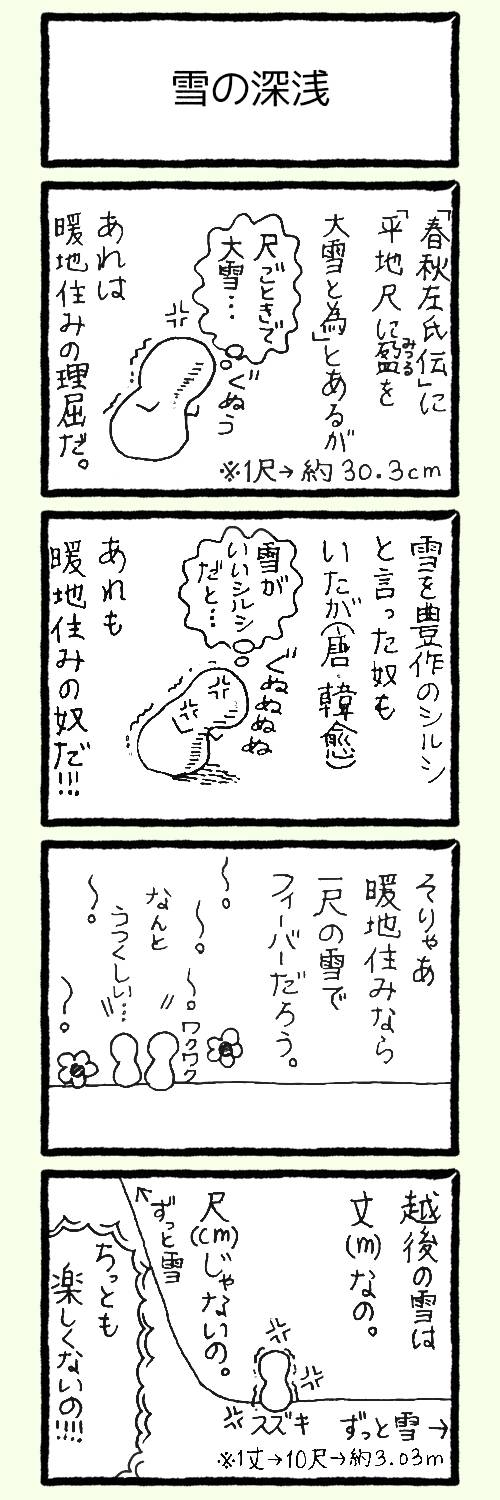 雪の深浅
「春秋左氏伝」に
「平地尺に盈を
みつる
大雪と為」とあるが
尺ごときで
大雪…
ぐぬう
あれは
暖地住みの理屈だ。
※1尺→約30.3cm
雪を豊作のシルシ
と言った奴も
いたが(唐・韓愈)
雪が
いいシルシ
だと…
ぐぬぬぬぬ
あれも
暖地住みの奴だ!!!
そりゃあ
暖地住みなら
一尺の雪で
フィーバーだろう。
〜。
〜。
〜。
ワクワク
なんと
うつくしい…
〜。
〜。
越後の雪は
丈(m)なの。
尺(cm)じゃないの。
ずっと雪
ちっとも
楽しくないの!!!!
スズキ
ずっと雪→
※1丈→10尺→約3.03m